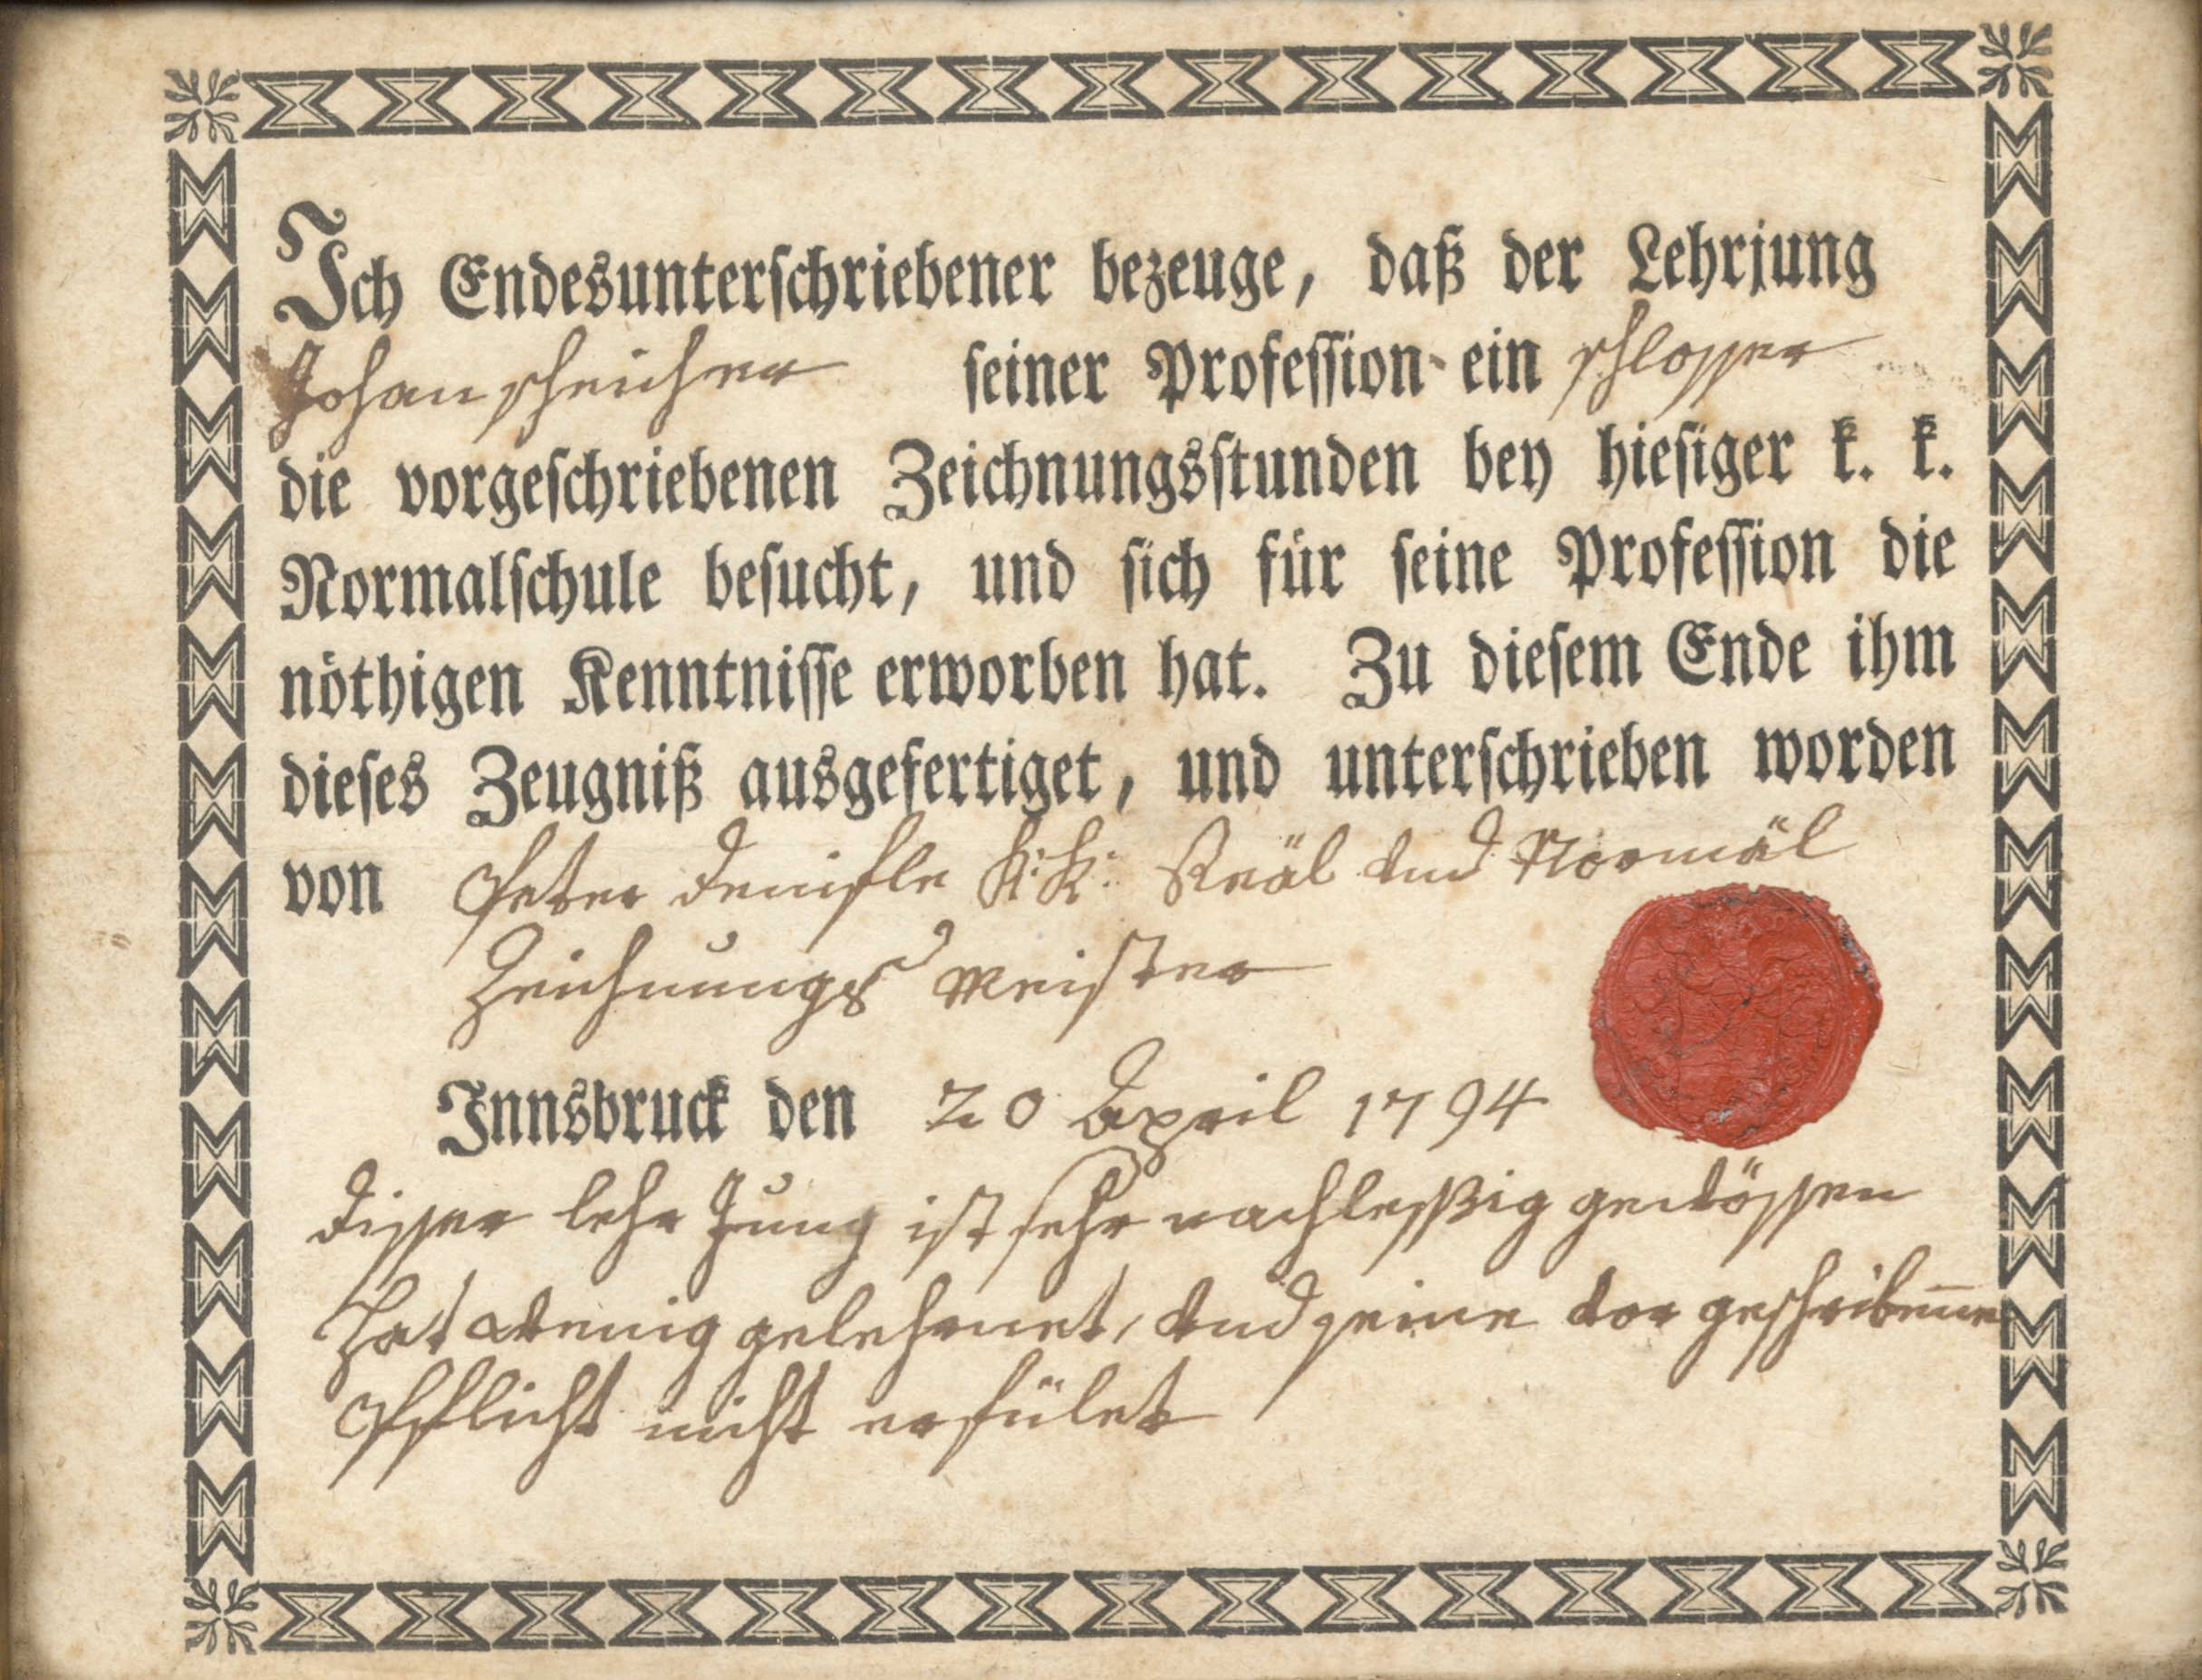 Ich Endesunterschriebener bezeuge, daß der Lehrjung
Johan scheicher seiner Profession ein schlosser
die vorgeschriebenen Zeichnungsstunden bey hiesiger k. k.
Normalschule besucht, und sich für seine Profession die
nöthigen Kenntnisse erworben hat. Zu diesem Ende ihm
dieses Zeugniß ausgefertiget, und unterschrieben worden
von Peter Denifle K: K: Reäl und Normäl
Zeichnungs Meister
Innsbruck den 20 April 1794
diser lehr Jung ist sehr nachleßig gewössen
Hat wenig gelehrnet, und seine vor geschribenne
Pflicht nicht erfület